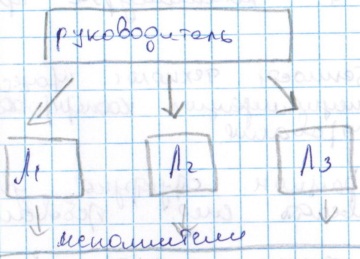 руководитель
Л₁ Л₂ Л3
исполнители